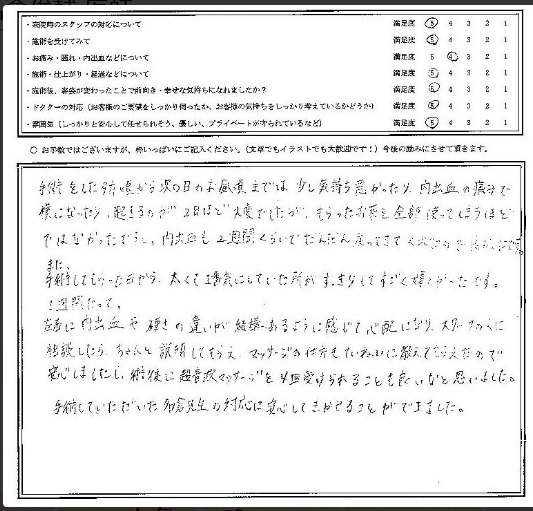 ・来院時のスタッフの対応について 満足度 5 4 3 2 1
・施術を受けてみて 満足度 5 4 3 2 1
・お痛み・腫れ・内出血などについて 満足度 5 4 3 2 1
・施術・仕上がり・経過などについて 満足度 5 4 3 2 1
・施術後、容姿が変わったことで前向き・幸せな気持ちになれましたか？ 満足度 5 4 3 2 1
・ドクターの対応（お客様のご要望をしっかり伺ったか、お客様の気持ちをしっかり考えているかどうか） 満足度 5 4 3 2 1
・雰囲気（しっかりと安心して任せられそう、優しい、プライベートが守られているなど） 満足度 5 4 3 2 1
○ お手数ではございますが、枠いっぱいにご記入ください。（文章でもイラストでも大歓迎です！）今後の励みにさせて頂きます。
手術をした夕方頃から次の日のお昼頃までは少し気持ち悪かったり、内出血の痛みで
横になったり、起きるのが2日ほど大変でしたが、もらったお薬を全部使ってしまうほど
ではなかったですし、内出血も2週間くらいでだんだん戻ってきて
また、
手術してもらった日から、太くて1番気にしていた所がすっきりしてすごく嬉しかったです。
1週間たって、
左右に内出血や硬さの違いが結構あるように感じて心配になり、スタッフの人に
相談したら、ちゃんと説明してもらえ、マッサージの仕方もていねいに教えてもらえたので
安心しましたし、術後に超音波マッサージを4回受けられることも良いなと思いました。
手術していただいた先生の対応に安心してまかせることができました。